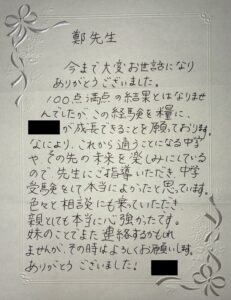 鄭先生
今まで大変お世話になり
ありがとうございました。
100点満点の結果とはなりませ
んでしたが、この経験を糧に、
が成長できることを願っております。
なにより、これから通うことになる中学
やその先の未来を楽しみにしている
ので、先生にご指導いただき、中学
受験をして本当によかったと思っています。
色々と相談にも乗っていただき、
親としても本当に心強かったです。
妹のことでまた連絡するかもしれ
ませんが、その時はよろしくお願いします。
ありがとうございました!